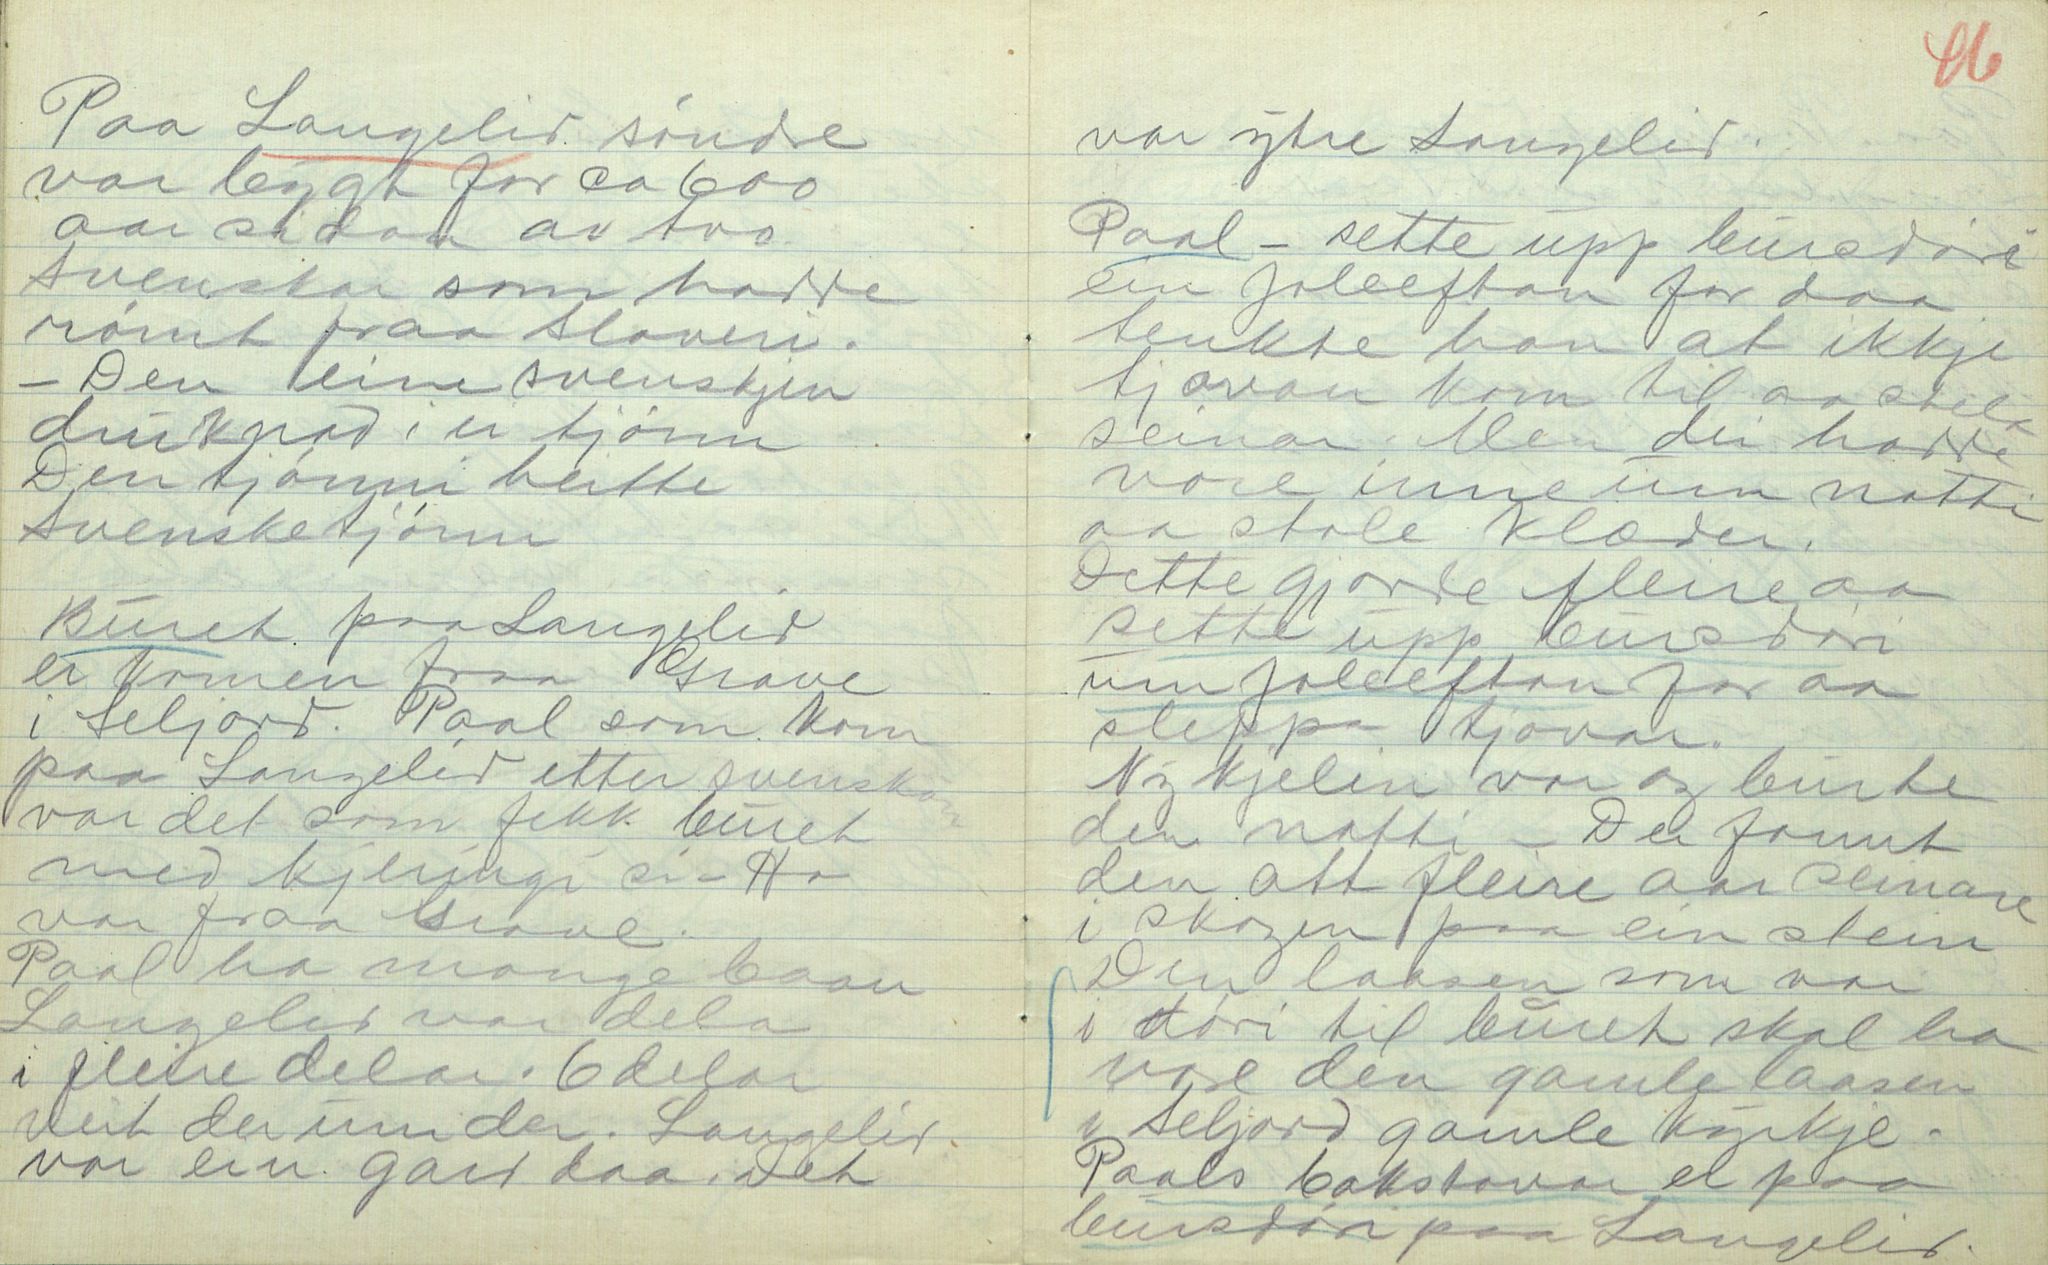 Paa Langelid søndre
var bygt for ca 600
aar sidan av tvo
svenskar som hadde
rømt fraa slaveri.
– Den eine svenskjen
druknad i ei tjønn
Den tjønni heitte
Svensketjønn
Buret paa Langelid
er komen fraa Grave
i Seljord. Paal som kom
paa Langelid etter svenskane
var det som fekk buret
med kjeringi si – Ho
var fraa Grave.
Paal ha mange baan
Langelid var dela
i fleire delar. 6 delar
veit dei um der. Langelid
var ein gard daa. Det
66
var ytre Langelid.
Paal – sette upp bursdøri
ein joleeftan for daa
tenkte han at ikkje
tjovan kom til aa stela
seinar. Men dei hadde
vore inne um natti
aa stole klæder.
Dette gjorde fleire aa
sette upp bursdøri
um joleeftan for aa
sleppa tjovar.
Nykjelin var og burte
den natti – Dei fann
den att fleire aar seinare
i skogen paa ein stein
Den laasen som var
i døri til buret skal ha
vore den gamle laasen
i Seljord gamle kyrkje.
Paals bokstavar er paa
bursdøri paa Langelid.